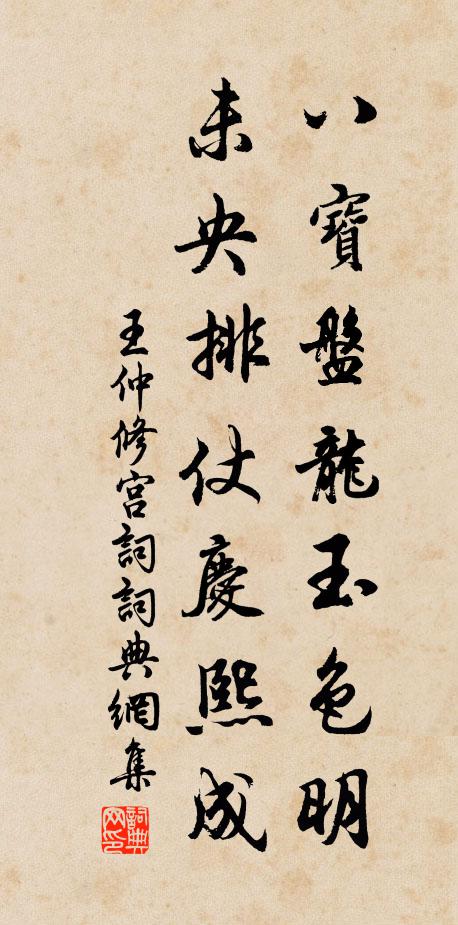 八寶盤龍玉色明
未央排仗慶熙成
王仲修宮詞詞典網集
詞典网印